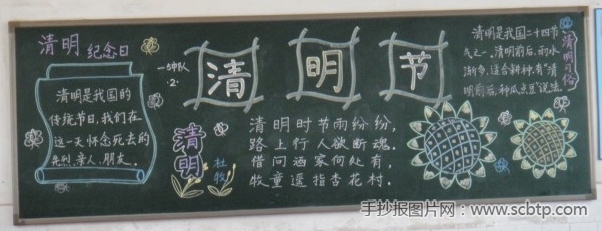 清明 纪念日
清明是我国的
传统节日,我们在
这一天怀念死去的
先烈、亲人、朋友。
·2·
清明节
清明
杜牧
清明时节雨纷纷,
路上行人欲断魂。
借问酒家何处有,
牧童遥指杏花村。
清明是我国二十四节
气之一。清明前后,雨水
渐多,适合耕种,有“清
明前后,种瓜点豆”说法。
清明习俗
手抄报图片网:www.scbtp.com